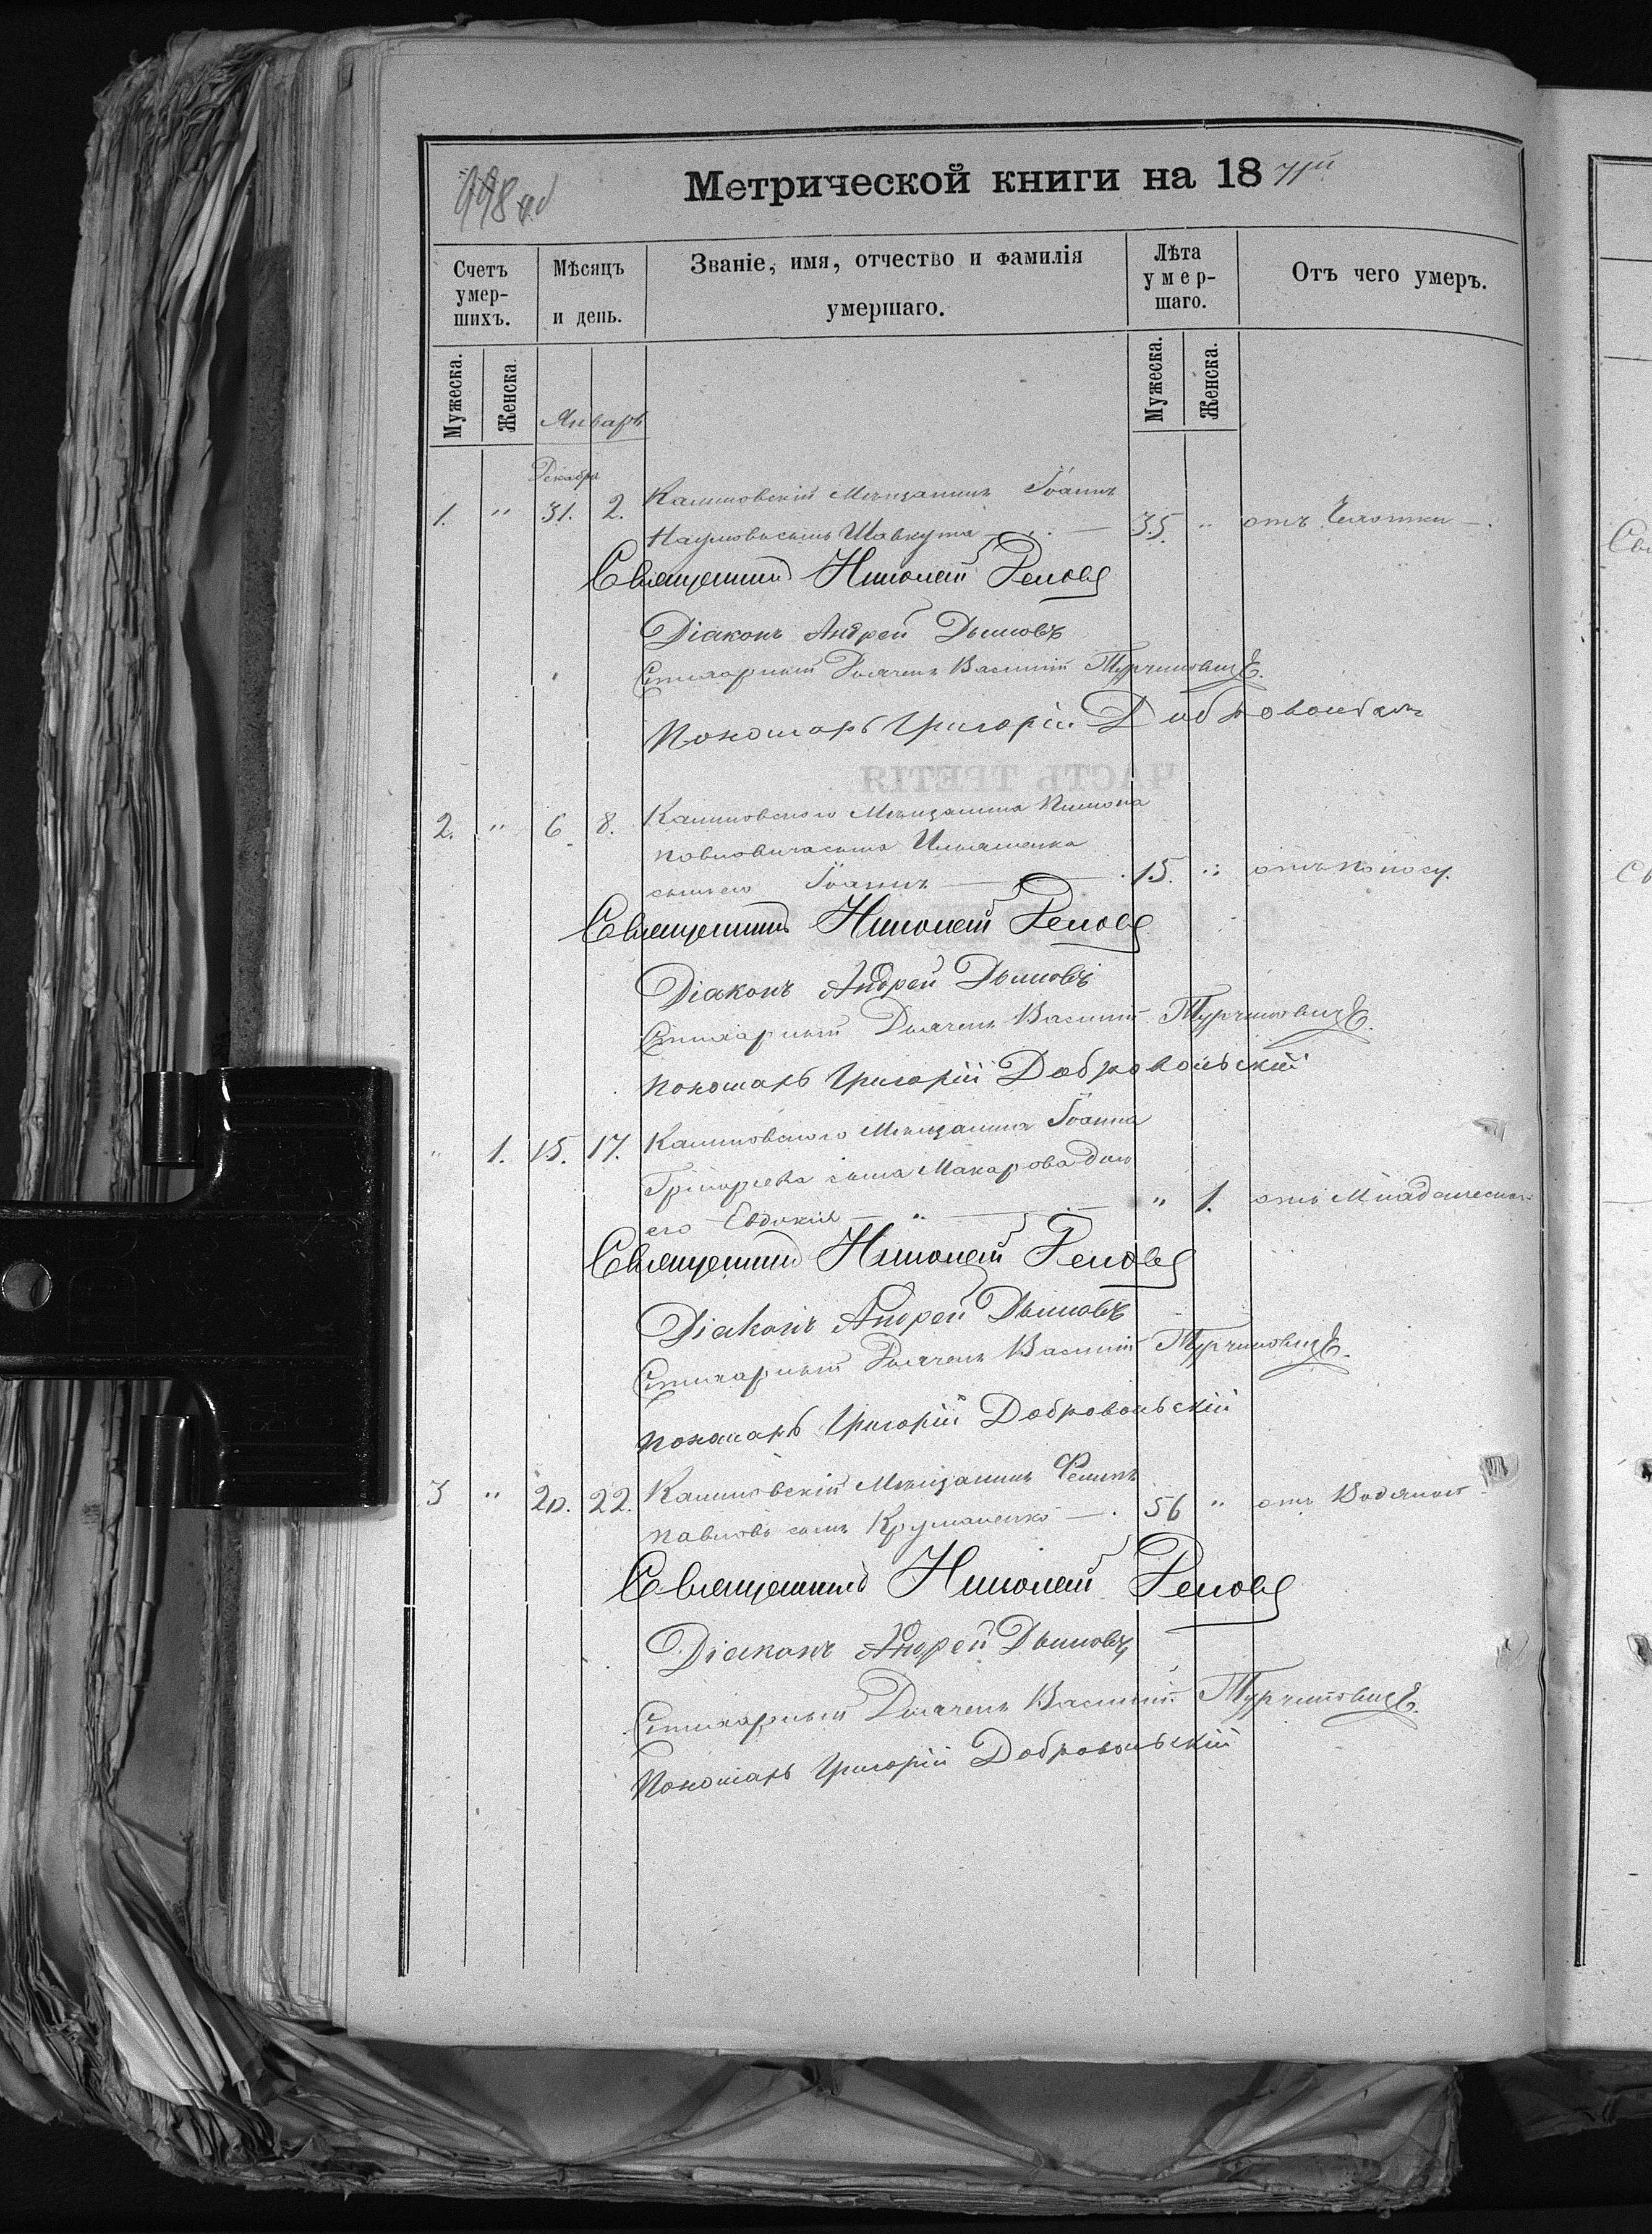 998 об
Метрической книги на 18 71й
Счетъ умер-шихъ.
Мѣсяцъ и день.
Званіе, имя, отчество и фамилія умершаго.
Лѣта умер-шаго.
Отъ чего умеръ.
Мужеска.
Женска.
Январь
Мужеска.
Женска.
Декабра
1. " 31. 2. Мѣщанинъ Іоаннъ
Наумовъ сынъ Шавкута 35. " отъ Чахотки
Священникъ Николай
Діаконъ Андрей Дымовъ
Стихарный Дьячекъ Василій Турчиновичъ
Пономарь Григорій Добровольскій
ЧАСТЬ ТРЕТІЯ
2. " 6 8. Мѣщанина
Павловича сына Ильяшенка
сынъ его Іоаннъ 15. " отъ поносу.
Священникъ Николай
Діаконъ Андрей Дымовъ
Стихарный Дьячекъ Василій Турчиновичъ
Пономарь Григорій Добровольскій
" 1. 15. 17. Мѣщанина Іоанна
Григорьева сына Макарова дочь
его Евдокія " 1. отъ Младенческой
Священникъ Николай
Діаконъ Андрей Дымовъ
Стихарный Дьячекъ Василій Турчиновичъ
Пономарь Григорій Добровольскій
3 " 20. 22. Мѣщанинъ
Павловъ сынъ 56 " отъ Водяной
Священникъ Николай
Діаконъ Андрей Дымовъ
Стихарный Дьячекъ Василій Турчиновичъ
Пономарь Григорій Добровольскій